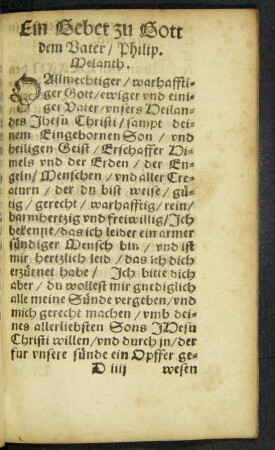 Ein Gebet zu Gott
dem Vater / Philip.
Melanth.
O Allmechtiger / warhaffti-
ger Gott / ewiger vnd eini-
ger Vater / vnsers Heilan-
des Jhesu Christi / sampt dei-
nem Eingebornen Son / vnd
heiligen Geist / Erschaffer Hi-
mels vnd der Erden / der En-
geln / Menschen / vnd aller Cre-
aturn / der du bist weise / gü-
tig / gerecht / warhafftig / rein /
barmhertzig vnd freiwillig / Ich
bekenne / das ich leider ein armer
sündiger Mensch bin / vnd ist
mir hertzlich leid / das ich dich
erzürnet habe / Ich bitte dich
aber / du wollest mir gnediglich
alle meine Sünde vergeben / vnd
mich gerecht machen / vmb dei-
nes allerliebsten Sons JHesu
Christi willen / vnd durch jn / der
fur vnsere sünde ein Opffer ge-
D iiij wesen